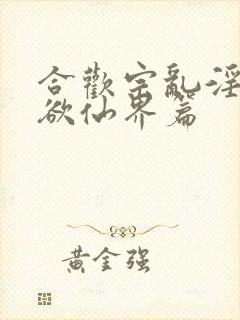 合歡宗亂淫
欲仙界篇
黃金强